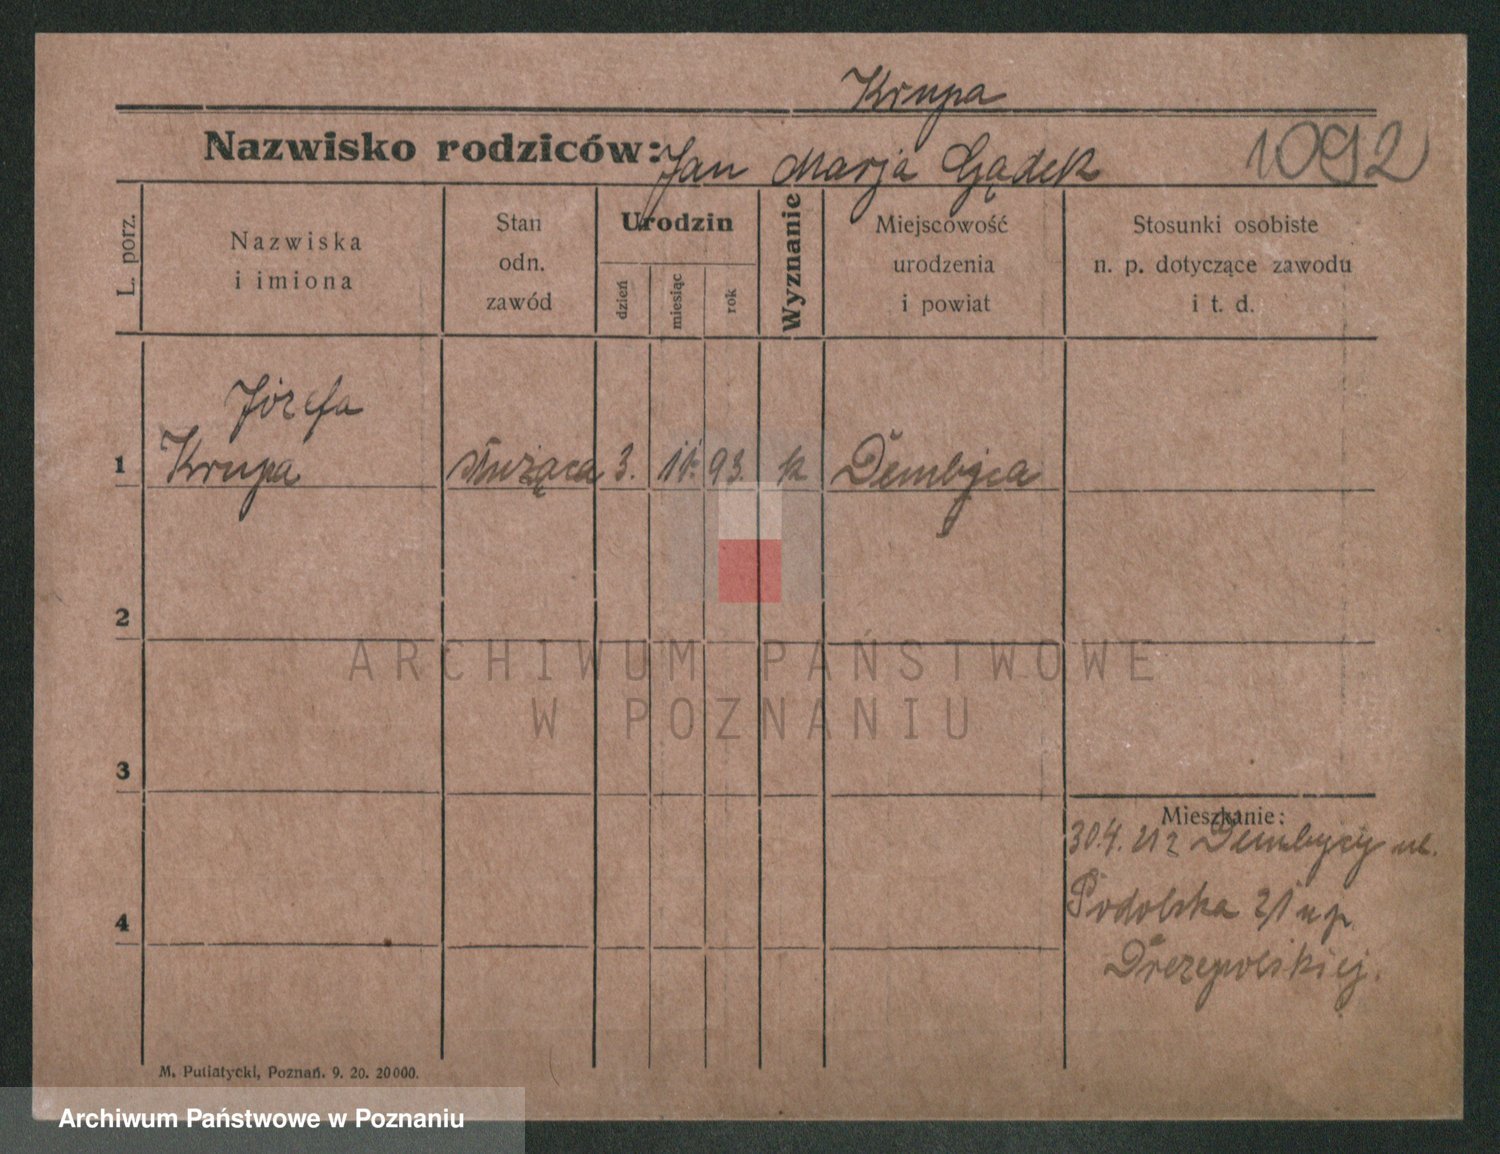 Krupa
Nazwisko rodziców: Jan Marja Gądek 1092
L. porz.
Nazwiska
i imiona
Stan
odn.
zawód
Urodzin
dzień
miesiąc
rok
Wyznanie
Miejscowość
urodzenia
i powiat
Stosunki osobiste
n. p. dotyczące zawodu
i t. d.
Józefa
1 Krupa służąca 3. 11. 93. k Dembyca
2
3
4
Mieszkanie:
30.4. 21 z Dembycy ul.
Podolska 2/1 u p.
Drezepolskiej.
M. Putiatycki, Poznań. 9. 20. 20000.
ARCHIWUM PAŃSTWOWE
W POZNANIU
Archiwum Państwowe w Poznaniu